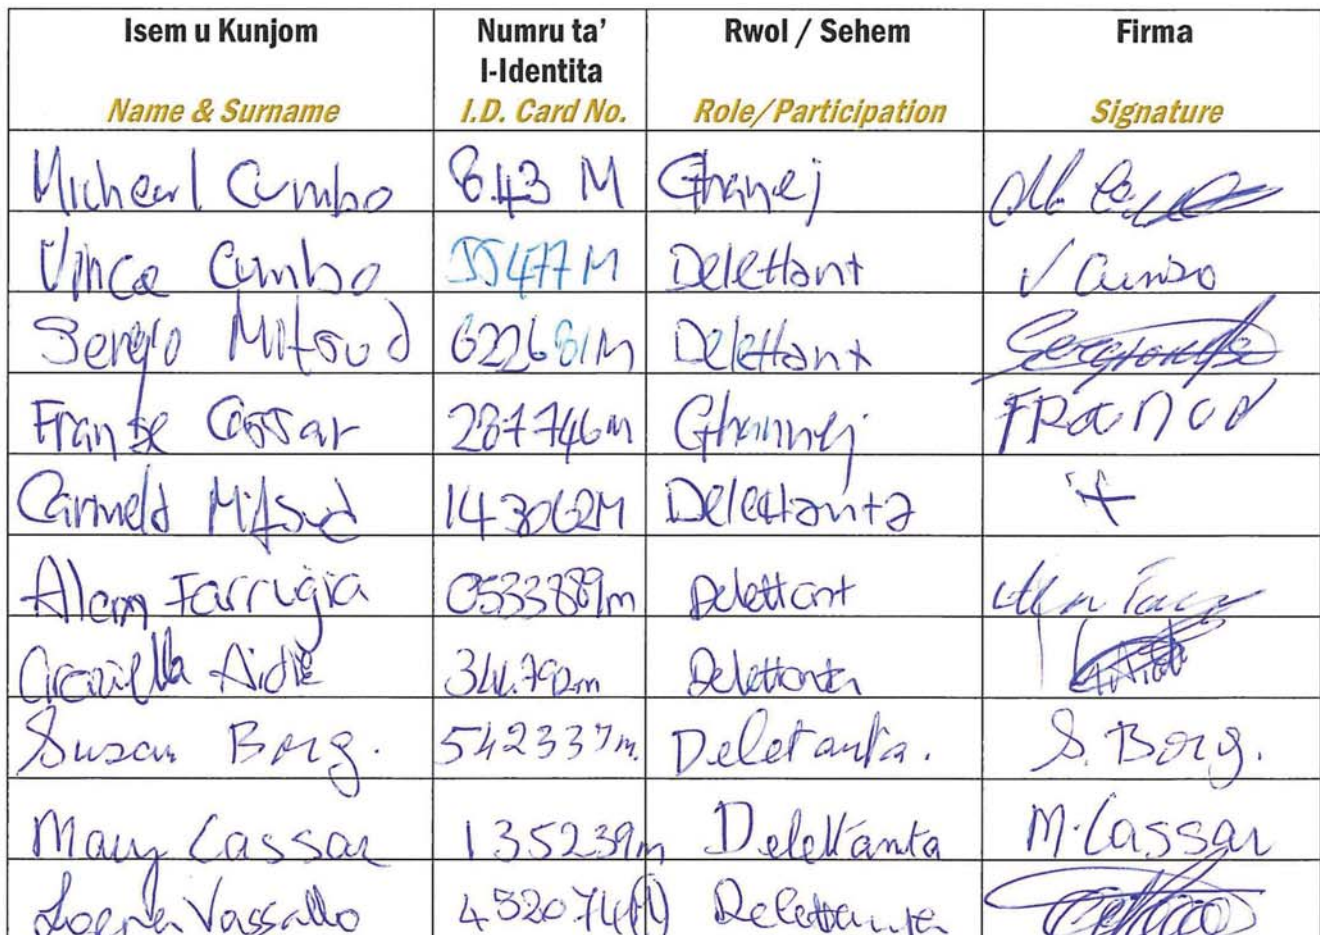 Isem u Kunjom Numru ta' Rwol / Sehem Firma
l-Identita
Name & Surname I.D. Card No. Role/Participation Signature
Michearl Cumbo 843 M Ghanej
Vince Cumbo 55477 M Delettant V Cumbo
Sergio Mifsud 622681M Delettant
Franse Cassar 287746m Ghannej
Carmela Mifsud 143062M Delettanta
Alam Farrugia 0533889m Delettant
344792m Delettanta
Susan Borg. 542337m. Deletanta. S. Borg.
Mary Cassar 135239m Delettanta M. Cassar
Vassallo 432074(M) Delettanta